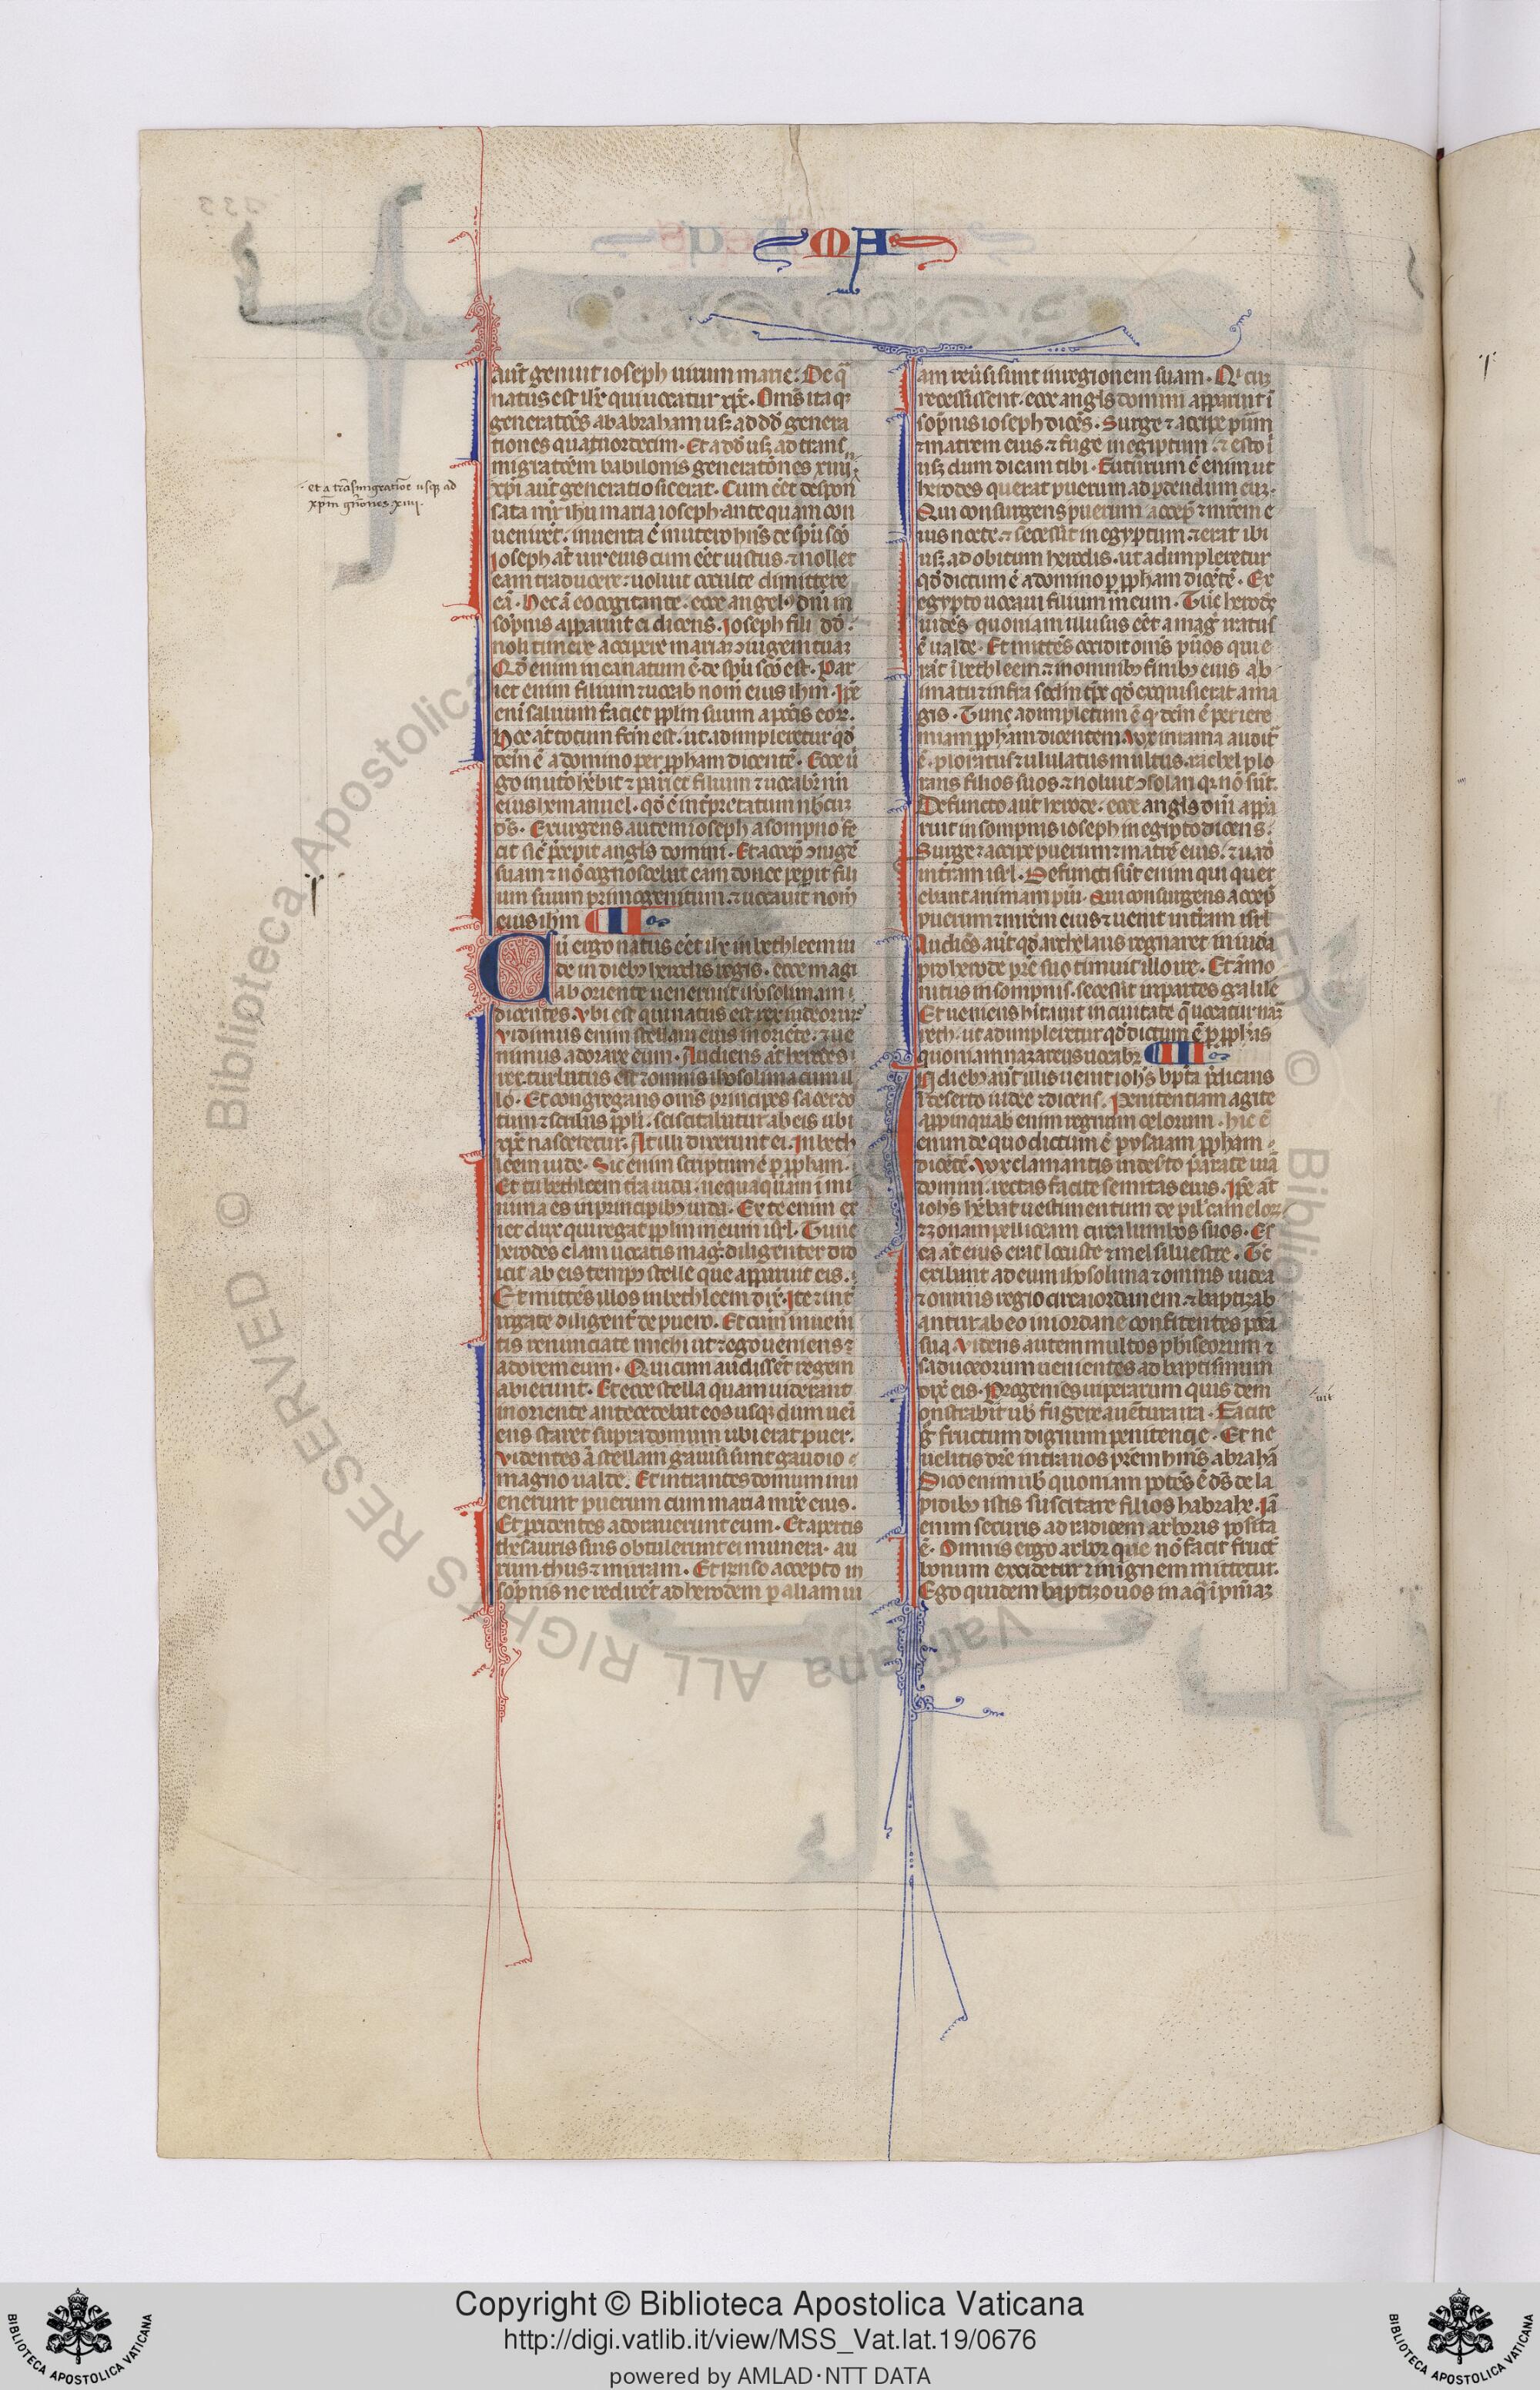 MA
aut̄ genuit ioseph uirum marie. De q̄
natus est ihc̄ qui uocatur xp̄c. Om̄s itaq;
generatōes ab abraham usq; ad dd̄ genera
tiones quatuordecim. Et a dd̄ usq; ad trans
migratōem babilonis generatōnes xiiii.
xp̄i aut̄ generatio sic erat. Cum eēt despon
sata mr̄ ihū maria ioseph. antequam con
uenirēt. inuenta ē in utero hn̄s de sp̄u sc̄o
Ioseph at̄ uir eius cum eēt iustus. ⁊ nollet
eam traducere: uoluit occulte dimittere
eā. Hec ā eo cogitante. ecce angel' dn̄i in
sōpnis apparuit ei dicens. Ioseph fili dd̄.
noli timere accipere mariaꝫ ꝯiugem tuaꝫ
Qd̄ enim in ea natum ē. de sp̄u sc̄o est. Par
iet enim filium ⁊ uocab nom̄ eius ihm̄. Ip̄e
eni saluum faciet pp̄lm suum a pcc̄is eoꝝ.
Hoc at̄ totum fcm̄ est. ut. adimpleretur qd̄
dcm̄ ē a domino per pp̄ham dicentē. Ecce ū
go in utō hēbit ⁊ pariet filium ⁊ uocabr̄ nn̄
eius hemanuel. qd̄ ē int̄pretatum nb̄cuꝫ
ds̄. Exurgens autem ioseph a sompno fe
cit sic̄ p̄cepit angls domini. Et accep̄ ꝯiugē
suam ⁊ nō cognoscebat eam donec pepit fili
um suum primogenitum. ⁊ uocauit nom̄
eius ihm̄ II
Cū ergo natus eēt ihc̄ in bethleem iu
de in dieb; herodis regis. ecce magi
ab oriente uenerunt ih̄osolimam.
dicentes. Vbi est qui natus est rex iudeoruꝫ
Vidimus enim stellam eius in oriēte. ⁊ ue
nimus adorare eum. Audiens at̄ herodes
rex. turbatus est ⁊ omnis ih̄osolima cum il
lo. Et congregans om̄s principes sacerdo
tum ⁊ scribas pp̄li. sciscitabatur ab eis ubi
xp̄c nasceretur. At illi dixerunt ei. In beth
leem iude. Sic enim scriptum ē p pp̄ham.
Et tu bethleem tr̄a iuda. nequaquam i mi
nima es in principib; iuda. Ex te enim ex
iet dux qui regat pp̄lm meum isrl̄. Tunc
herodes clam uocatis mag'. diligenter didi
icit ab eis temp; stelle que apparuit eis.
Et mittēs illos in bethleem dix̄. Ite ⁊ int̄
rogate diligent̄ de puero. Et cum inueni
tis renunciate michi ut ⁊ ego ueniens ⁊
adorem eum. Qui cum audissēt regem
abierunt. Et ecce stella quam uiderant
in oriente antecedebat eos usq; dum ueni
ens staret supra domum ubi erat puer.
Videntes ā stellam gauisi sunt gaudio
magno ualde. Et intrantes domum inu
enerunt puerum cum maria mr̄e eius.
Et p̄cidentes adorauerunt eum. Et apertis
thesauris suis obtulerunt ei munera. au
rum. thus. ⁊ mirram. Et rn̄so accepto in
sōpnis ne redirēt ad herodem. p aliam ui
et a trāsmigratiōe usq; ad
xp̄m gn̄ones xiiii.
am reūsi sunt in regionem suam. Qi cuꝫ
recessissent. ecce angls domini apparuit ī
sōpnis ioseph dicēs. Surge ⁊ accipe puūm
⁊ matrem eius. ⁊ fuge in egiptum. ⁊ esto ī
usq; dum dicam tibi. Futurum ē enim ut
herodes querat puerum ad p̄dendum euꝫ.
Qui consurgens puerum accep̄ ⁊ mr̄em e
ius nocte. ⁊ secessit in egyptum. ⁊ erat ibi
usq; ad obitum herodis. ut adimpleretur
qd̄ dictum ē a domino p pp̄ham dicētē. Ex
egypto uocaui filium meum. Tūc herodes
uidēs quoniam illusus eēt a mag' iratus
ē ualde. Et mittēs occidit om̄s pūos qui e
rāt ī bethleem. ⁊ in omnib; finib; eius ab
imatu ⁊ infra scd̄m tp̄c qd̄ exquisierat a ma
gis. Tunc adimpletum ē q dcm̄ ē per iere
miam pp̄ham dicentem. Vox in rama audit̄
ē. ploratus ⁊ ululatus multus. rachel plo
rans filios suos. ⁊ noluit ꝯsolari. q nō sūt.
Defuncto aut̄ herode. ecce angls dn̄i appa
ruit in sompnis ioseph in egipto dicens.
Surge ⁊ accipe puerum ⁊ matrē eius. ⁊ uad
in tr̄am isrl̄. Defuncti sūt enim qui quer
ebant animam pūi. Qui consurgens accep̄
puerum ⁊ mr̄em eius ⁊ uenit in tr̄am isrl̄
Audiēs aut̄ qd̄ archelaus regnaret in iuda
pro herode pr̄e suo timuit illo ire. Et amo
nitus in sompnis. secessit in partes galilee
Et ueniens hitauit in ciuitate q̄ uocatur naꝫ
reth. ut adimpleretur qd̄ dictum ē p pp̄has
quoniam nazareus uocabr̄ III
In dieb; aut̄ illis uenit ioh̄s bp̄ta p̄dicans
ī deserto iudee ⁊ dicens. Penitentiam agite
appinquab enim regnum celorum. hic ē
enim de quo dictum ē p ysaiam pp̄ham
dicētē. Vox clamantis in des̄to parate uiā
domini. rectas facite semitas eius. Ip̄e at̄
ioh̄s hēbat uestimentum de pil' cameloꝝ
⁊ zonam pelliceam circa lumbos suos. Es
ca at̄ eius erat locuste ⁊ mel siluestre. Tc̄
exibant ad eum ih̄osolima ⁊ omnis iudea
⁊ omnis regio circa iordanem. ⁊ baptizab
antur ab eo in iordane confitentes pcc̄a
sua. Videns autem multos phiseorum ⁊
saduceorum uenientes ad baptismum
dix̄ eis. Progenies uiperarum quis dem
onstrabit ub̄ fugere a uentura ira. Facite
g̊ fructum dignum penitencie. Et ne
uelitis dicere intra uos pr̄em hm̄s abrahā
Dico enim ub̄ quoniam potēs ē ds̄ de la
pidib; istis suscitare filios habrahe. Iā
enim securis ad radicem arboris posita
ē. Omnis ergo arbor que nō facit fruct̄
bonum excidetur ⁊ in ignem mittetur.
Ego quidem baptizo uos in aq̄ i pn̄iaꝫ
uit
© Biblioteca Apostolica Vaticana ALL RIGHTS RESERVED
Copyright © Biblioteca Apostolica Vaticana
http://digi.vatlib.it/view/MSS_Vat.lat.19/0676
powered by AMLAD·NTT DATA
BIBLIOTECA APOSTOLICA VATICANA
BIBLIOTECA APOSTOLICA VATICANA